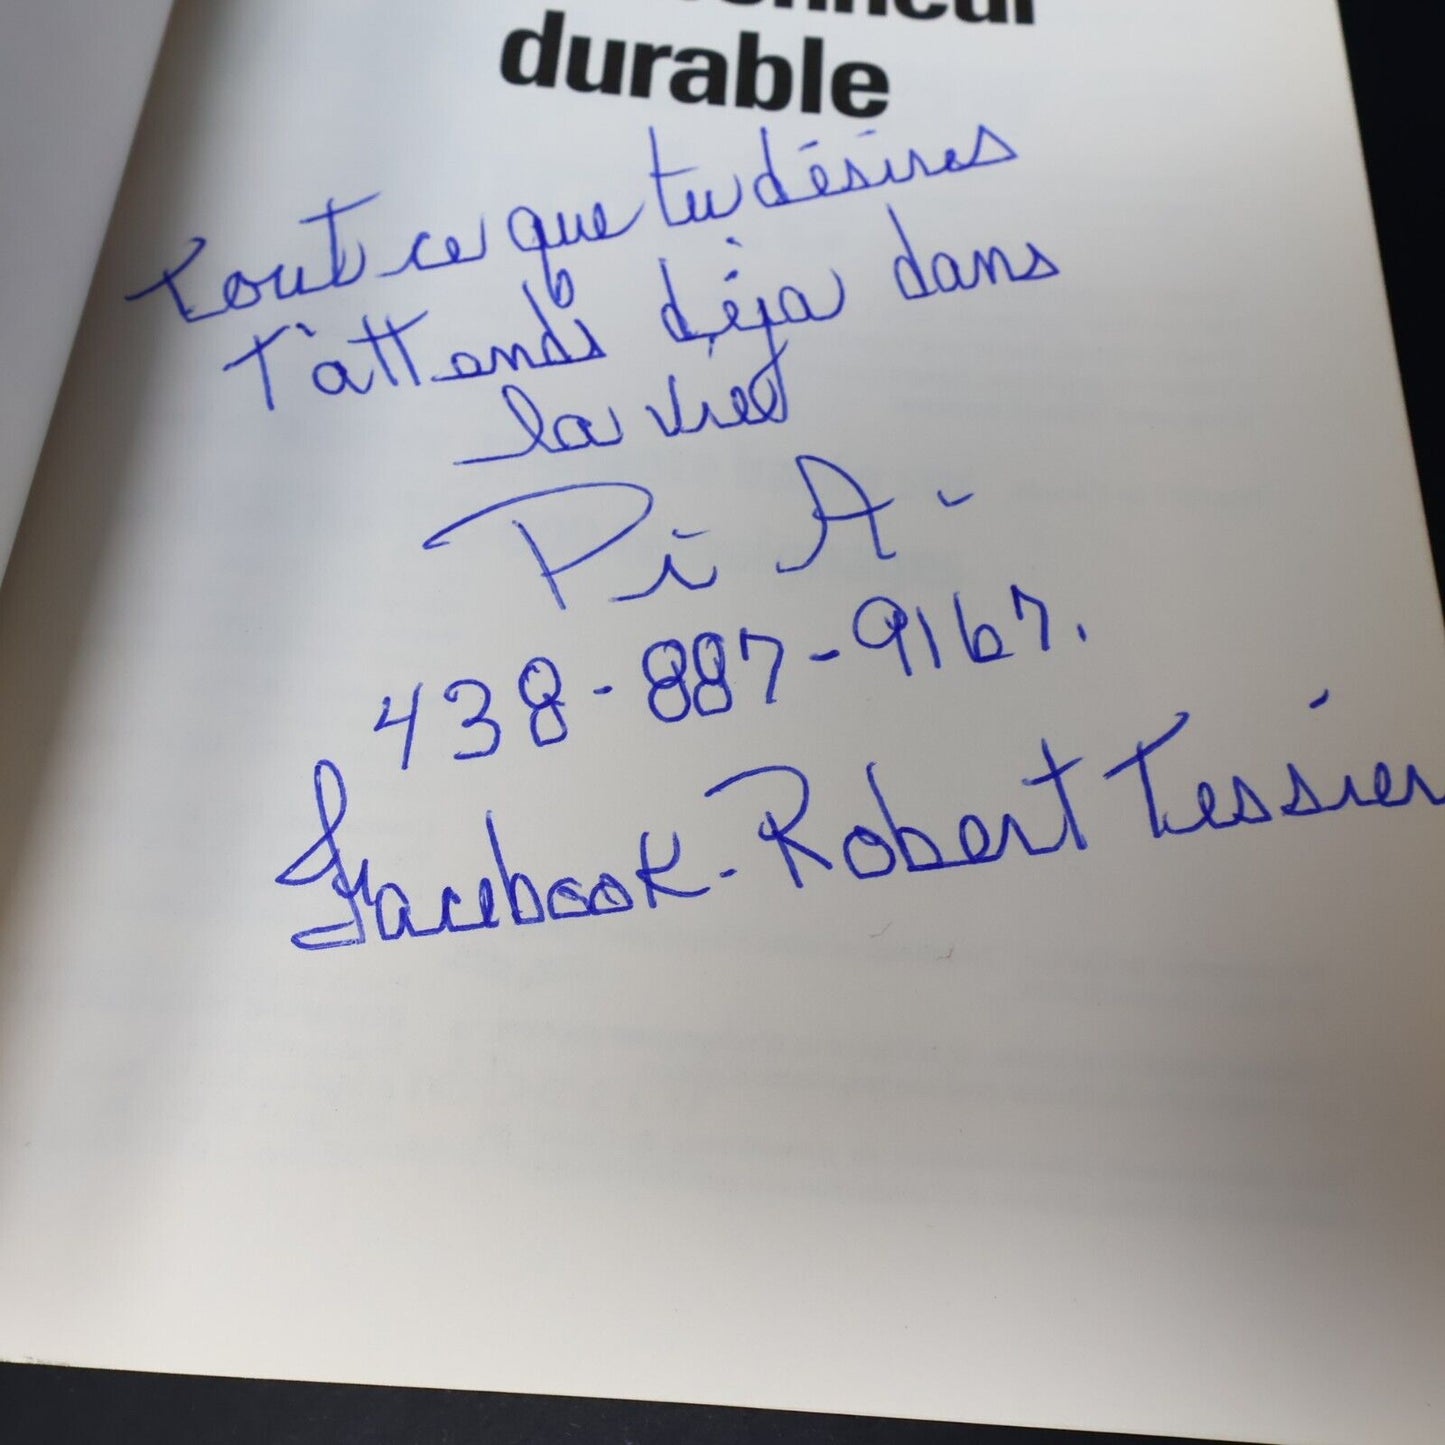 durable
Tout ce que tu désires
T'attends déja dans
la vie
Pi A -
438-887-9167.
Facebook - Robert Tessier